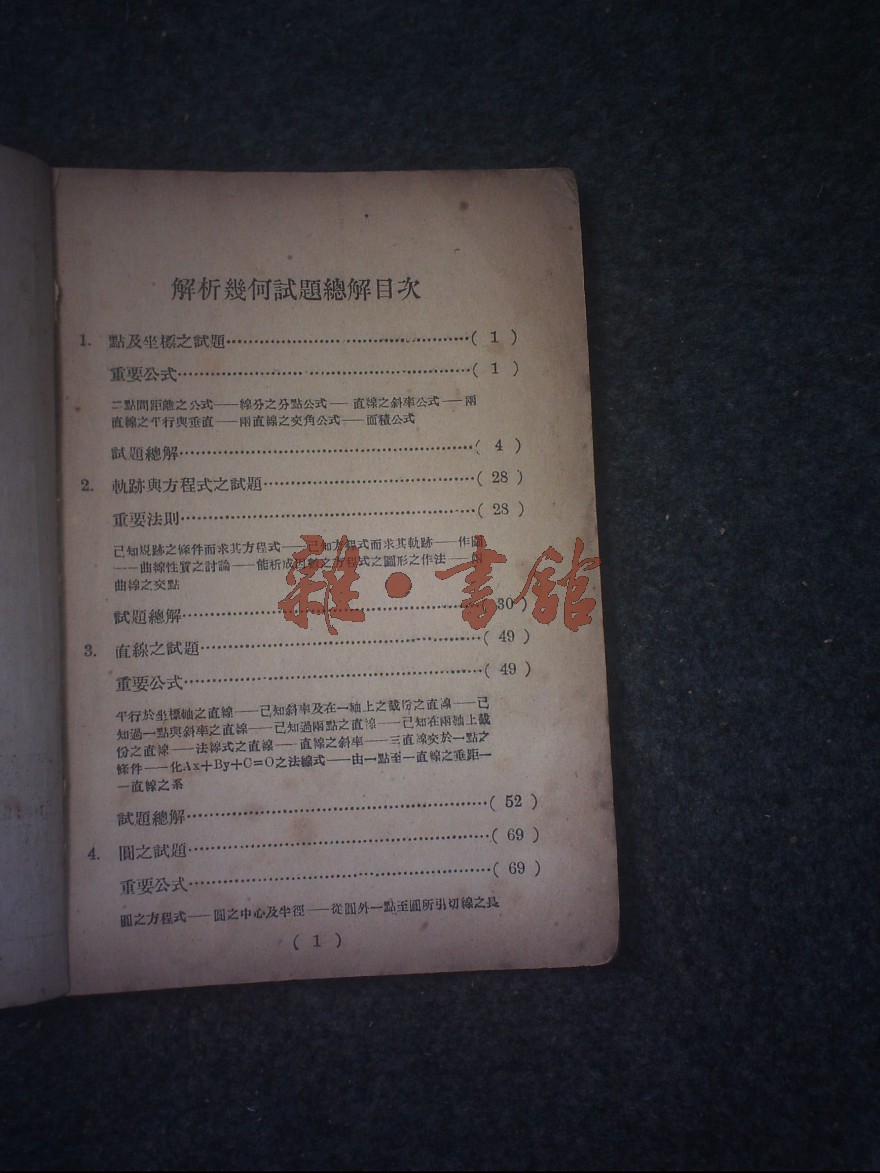 解析幾何試題總解目次
1. 點及坐標之試題……………………………………( 1 )
重要公式……………………………………( 1 )
二點間距離之公式——線分之分點公式——直線之斜率公式——兩
直線之平行與垂直——兩直線之交角公式——面積公式
試題總解……………………………………( 4 )
2. 軌跡與方程式之試題……………………………………( 28 )
重要法則……………………………………( 28 )
已知軌跡之條件而求其方程式——已知方程式而求其軌跡——作圖
——曲線性質之討論——能析成因數之方程式之圖形之作法——兩
曲線之交點
雜·書館
試題總解……………………………………( 30 )
3. 直線之試題……………………………………( 49 )
重要公式……………………………………( 49 )
平行於坐標軸之直線——已知斜率及在一軸上之截份之直線——已
知過一點與斜率之直線——已知過兩點之直線——已知在兩軸上截
份之直線——法線式之直線——直線之斜率——三直線交於一點之
條件——化Ax+By+C=O之法線式——由一點至一直線之垂距—
—直線之系
試題總解……………………………………( 52 )
4. 圓之試題……………………………………( 69 )
重要公式……………………………………( 69 )
圓之方程式——圓之中心及半徑——從圓外一點至圓所引切線之長
( 1 )